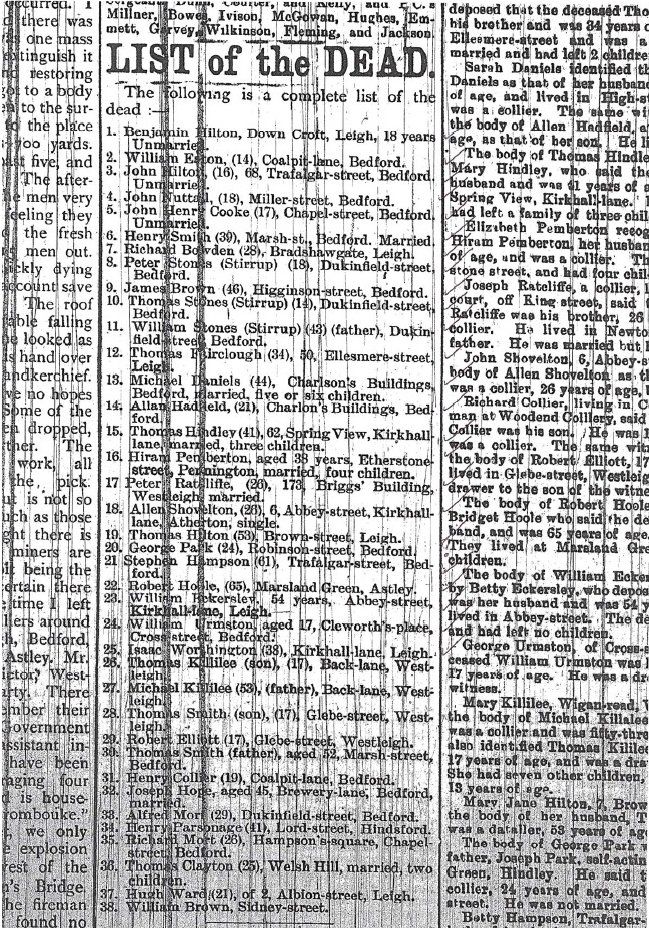 occurred. I
there was
one mass
extinguish it
restoring
to a body
to the sur-
to the place
700 yards.
past five, and
The after-
the men very
feeling they
the fresh
men out.
quickly dying
account save
The roof
falling
he looked as
his hand over
handkerchief.
no hopes
Some of the
dropped,
The
work, all
the pick.
is not so
such as those
there is
miners are
being the
certain there
time I left
around
Bedford,
Astley. Mr.
West-
There
their
Government
assistant in-
have been
raging four
is house-
we only
explosion
rest of the
Bridge,
the fireman
found no
and Kelly, and P.C.'s
Millner, Bowes, Ivison, McGowan, Hughes, Em-
mett, Garvey, Wilkinson, Fleming, and Jackson.
LIST of the DEAD.
The following is a complete list of the
dead :—
1. Benjamin Hilton, Down Croft, Leigh, 18 years
Unmarried.
2. William Eston, (14), Coalpit-lane, Bedford.
3. John Hilton (16), 68, Trafalgar-street, Bedford
Unmarried.
4. John Nuttall, (18), Miller-street, Bedford.
5. John Henry Cooke (17), Chapel-street, Bedford.
Unmarried.
6. Henry Smith (39), Marsh-st., Bedford. Married.
7. Richard Bowden (28), Bradshawgate, Leigh.
8. Peter Stones (Stirrup) (18), Dukinfield-street,
Bedford.
9. James Brown (46), Higginson-street, Bedford.
10. Thomas Stones (Stirrup) (14), Dukinfield-street,
Bedford.
11. William Stones (Stirrup) (43) (father), Dukin-
field-street, Bedford.
12. Thomas Fairclough (34), 50, Ellesmere-street,
Leigh.
13. Michael Daniels (44), Charlson's Buildings,
Bedford, married, five or six children.
14. Allan Hadfield, (21), Charlon's Buildings, Bed-
ford.
15. Thomas Hindley (41), 62, Spring View, Kirkhall-
lane, married, three children.
16. Hiram Pemberton, aged 38 years, Etherstone-
street, Pennington, married, four children.
17 Peter Ratcliffe, (26), 173, Briggs' Building,
Westleigh, married.
18. Allen Shovelton, (26), 6, Abbey-street, Kirkhall-
lane, Atherton, single.
19. Thomas Hilton (53), Brown-street, Leigh.
20. George Park (24), Robinson-street, Bedford.
21 Stephen Hampson (61), Trafalgar-street, Bed-
ford.
22. Robert Hoole, (65), Marsland Green, Astley.
23. William Eckersley, 54 years, Abbey-street,
Kirkhall-lane, Leigh.
24. William Urmston, aged 17, Cleworth's-place,
Cross-street, Bedford.
25. Isaac Worthington (38), Kirkhall-lane, Leigh.
26. Thomas Killilee (son), (17), Back-lane, West-
leigh.
27. Michael Killilee (53), (father), Back-lane, West-
leigh.
28. Thomas Smith (son), (17), Glebe-street, West-
leigh.
29. Robert Elliott (17), Glebe-street, Westleigh.
30. Thomas Smith (father), aged 52, Marsh-street,
Bedford.
31. Henry Collier (19), Coalpit-lane, Bedford.
32. Joseph Hope, aged 45, Brewery-lane, Bedford,
married.
33. Alfred Mort (29), Dukinfield-street, Bedford.
34. Henry Parsonage (41), Lord-street, Hindsford.
35. Richard Mort (26), Hampson's-square, Chapel-
street, Bedford.
36. Thomas Clayton (25), Welsh Hill, married, two
children.
37. Hugh Ward (21), of 2, Albion-street, Leigh.
38. William Brown, Sidney-street.
deposed that the deceased Tho
his brother and was 34 years o
Ellesmere-street and was a
married and had left 2 childre
Sarah Daniels identified th
Daniels as that of her husband
of age, and lived in High-st
was a collier. The same wit
the body of Allen Hadfield, a
age, as that of her son. He li
The body of Thomas Hindle
Mary Hindley, who said the
husband and was 41 years of a
Spring View, Kirkhall-lane.
had left a family of three chil
Elizabeth Pemberton recog
Hiram Pemberton, her husban
of age, and was a collier. Th
stone street, and had four chil
Joseph Ratcliffe, a collier, 1
court, off King street, said t
Ratcliffe was his brother, 26
collier. He lived in Newto
father. He was married but h
John Shovelton, 6, Abbey-s
body of Allen Shovelton as th
was a collier, 26 years of age,
Richard Collier, living in C
man at Woodend Colliery, said
Collier was his son. He was 1
was a collier. The same witn
the body of Robert Elliott, 17
lived in Glebe-street, Westleig
drawer to the son of the witne
The body of Robert Hoole
Bridget Hoole who said the de
band, and was 65 years of age.
They lived at Marsland Gre
children.
The body of William Ecker
by Betty Eckersley, who depos
was her husband and was 54 y
lived in Abbey-street. The de
and had left no children.
George Urmston, of Cross-s
ceased William Urmston was h
17 years of age. He was a dr
witness.
Mary Killilee, Wigan-road, W
the body of Michael Killalee
was a collier and was fifty-three
also identified Thomas Killilee
17 years of age, and was a dra
She had seven other children,
13 years of age.
Mary Jane Hilton, 7, Brow
the body of her husband, T
was a dataller, 53 years of age
The body of George Park w
father, Joseph Park, self-actin
Green, Hindley. He said t
collier, 24 years of age, and
street. He was not married.
Betty Hampson, Trafalgar-